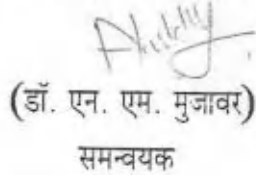 (डॉ. एन. एम. मुजावर)
समन्वयक